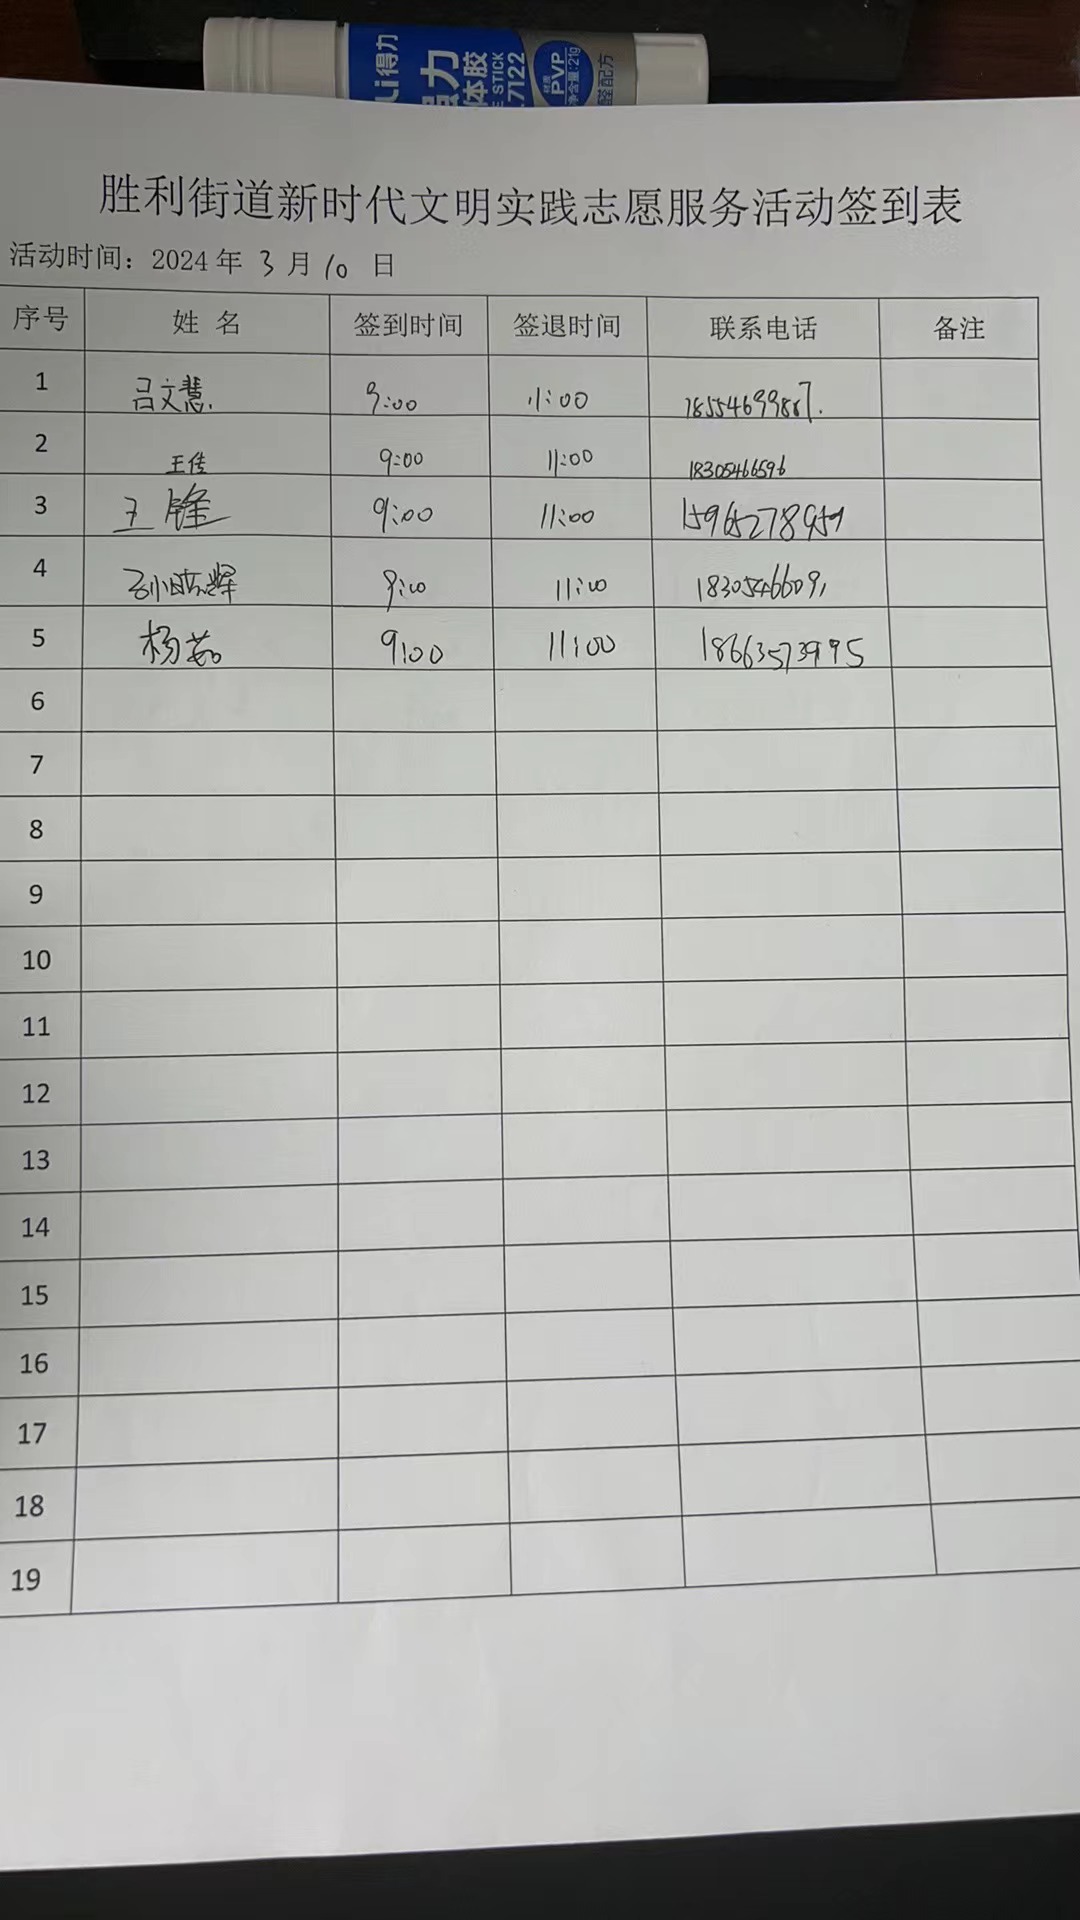 Li得力
强力
体胶
E STICK
.7122
PVP
净含量:21g
醛配方
胜利街道新时代文明实践志愿服务活动签到表
活动时间：2024 年 3 月 10 日
序号 姓 名 签到时间 签退时间 联系电话 备注
1 吕文慧. 9:00 11:00
2 王佳 9:00 11:00 18305466596
3 王锋 9:00 11:00 15965278959
4 9:00 11:00 18305466091
5 杨茹 9:00 11:00
6
7
8
9
10
11
12
13
14
15
16
17
18
19